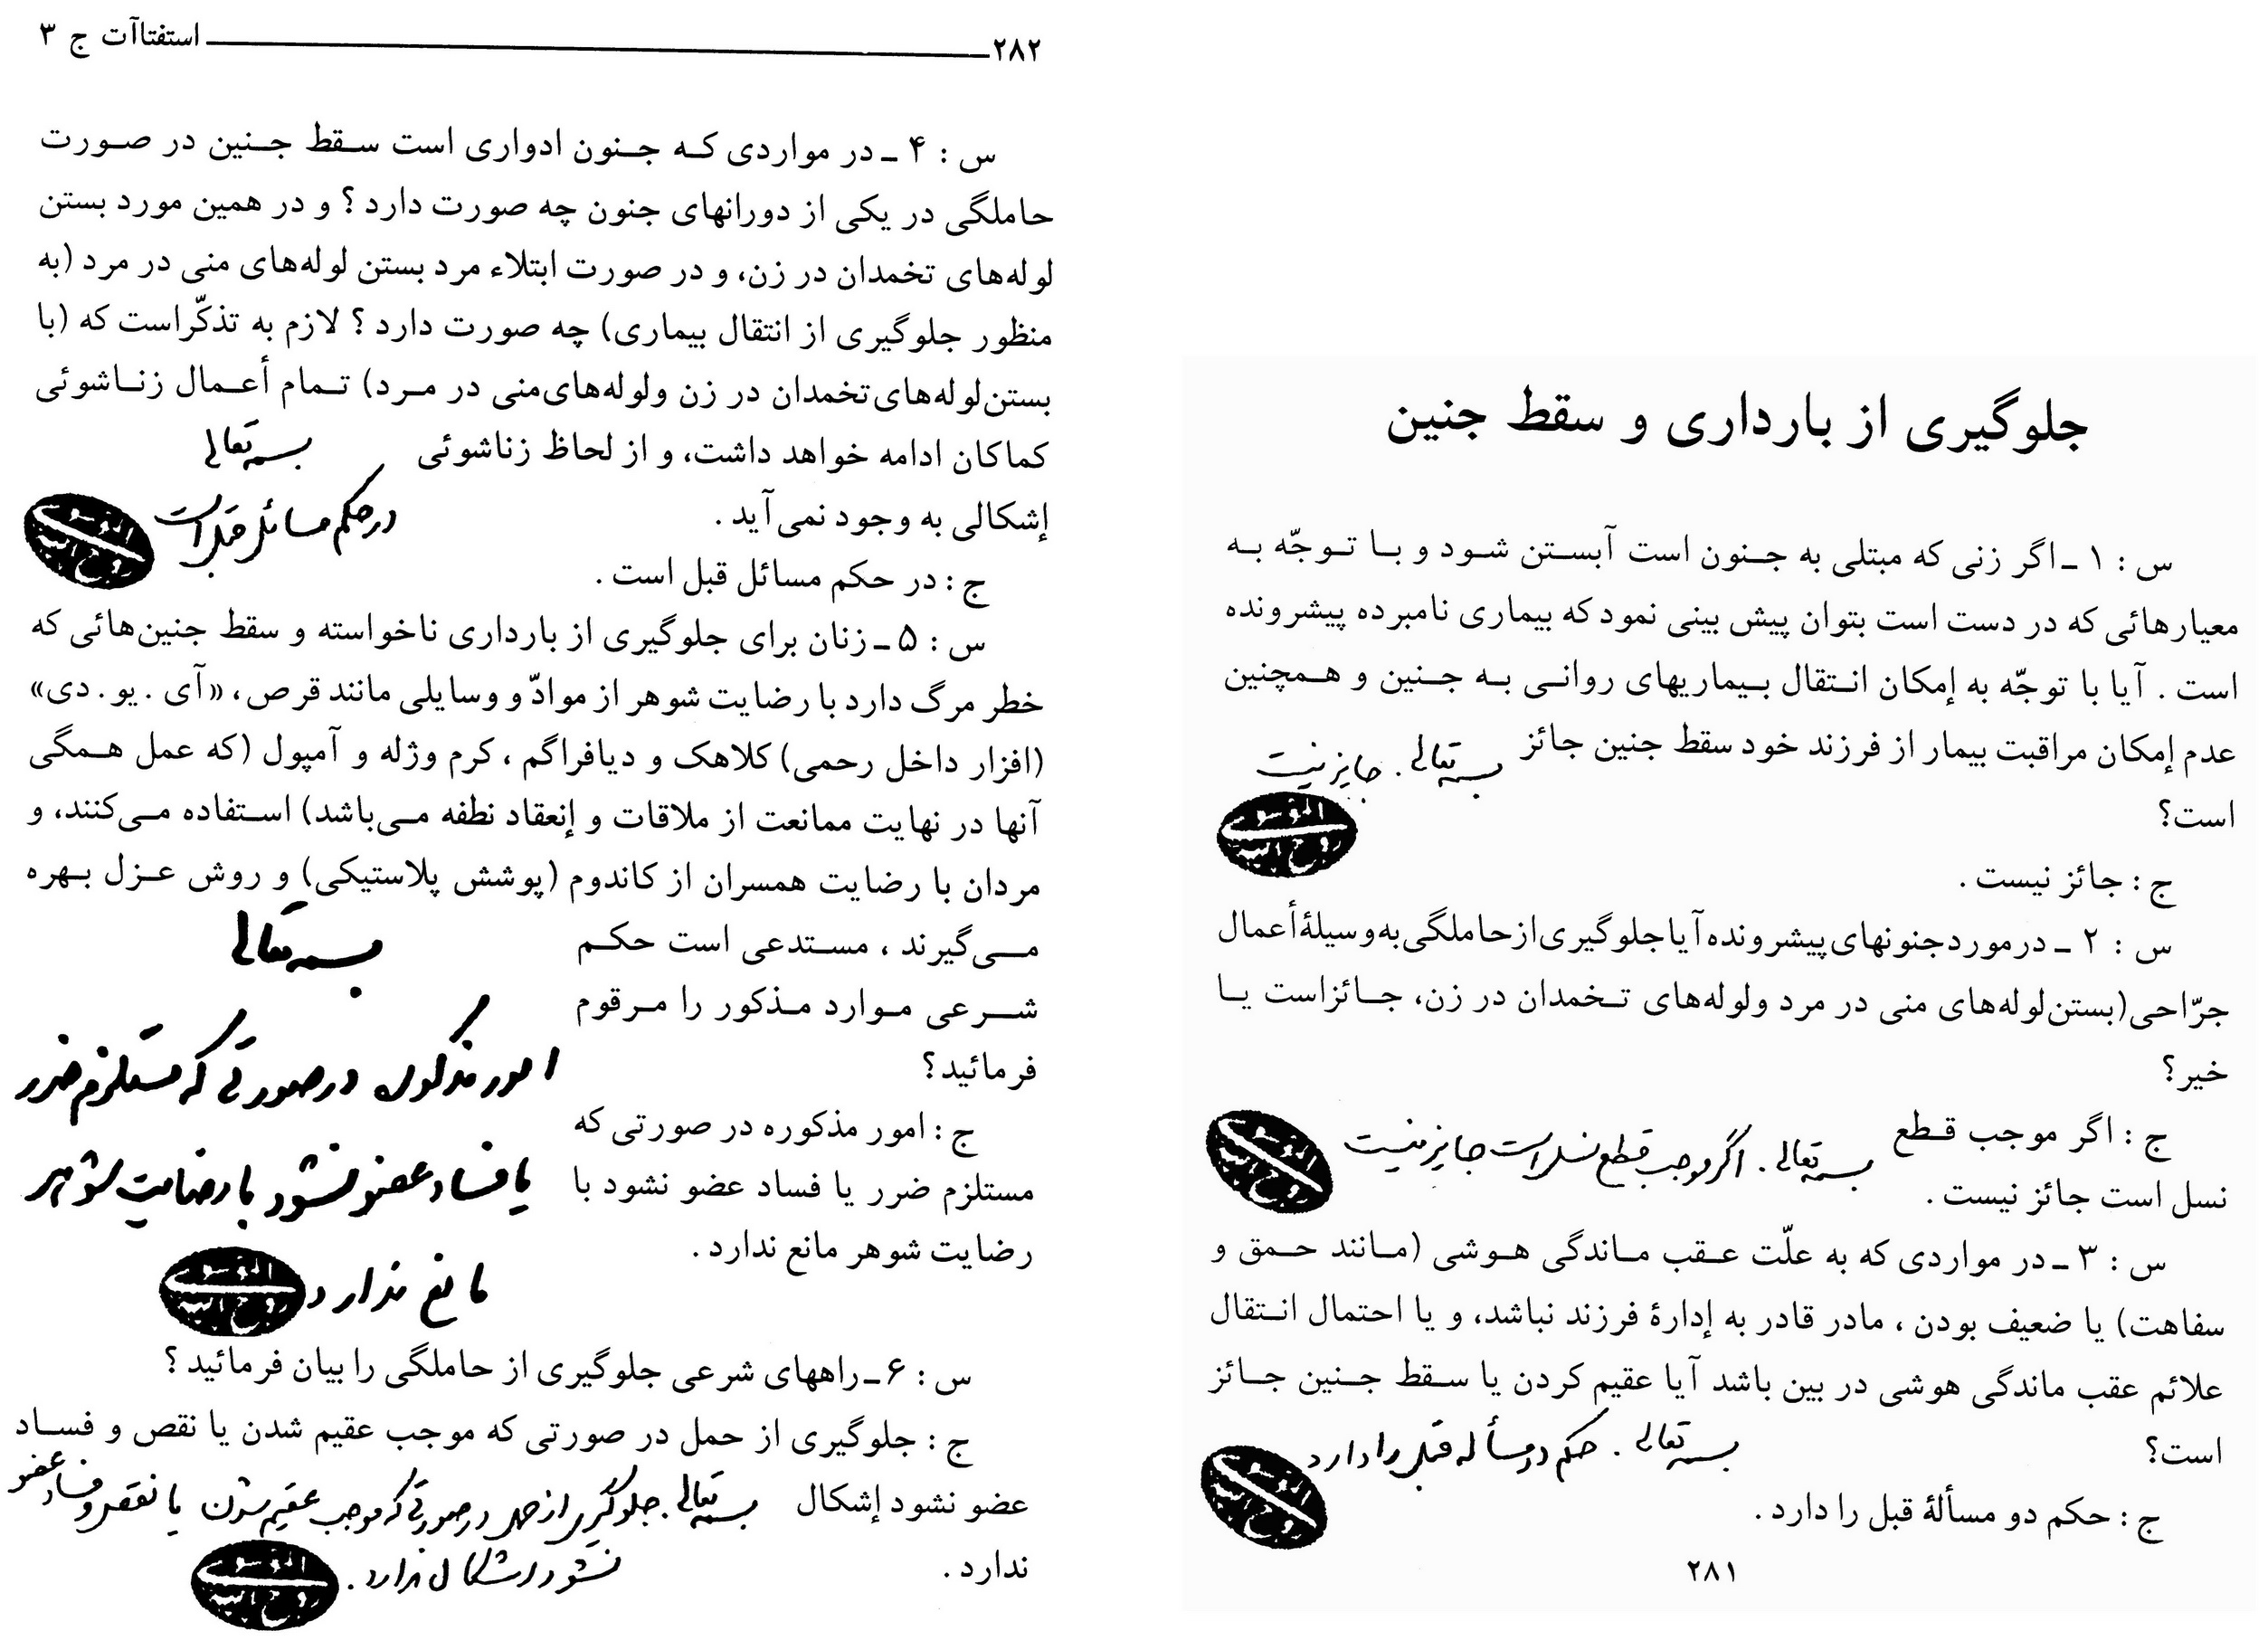 جلوگیری از بارداری و سقط جنین
س : ۱ ـ اگر زنی که مبتلی به جنون است آبستن شود و با توجّه به
معیارهائی که در دست است بتوان پیش بینی نمود که بیماری نامبرده پیشرونده
است . آیا با توجّه به إمکان انتقال بیماریهای روانی به جنین و همچنین
عدم إمکان مراقبت بیمار از فرزند خود سقط جنین جائز
بسمه تعالی . جایز نیست
است؟
ج : جائز نیست .
س : ۲ ـ در مورد جنونهای پیشرونده آیا جلوگیری از حاملگی به وسیلهٔ أعمال
جرّاحی (بستن لوله‌های منی در مرد ولوله‌های تخمدان در زن، جائز است یا
خیر؟
ج : اگر موجب قطع
بسمه تعالی . اگر موجب قطع نسل است جایز نیست
نسل است جائز نیست .
س : ۳ ـ در مواردی که به علّت عقب ماندگی هوشی (مانند حمق و
سفاهت) یا ضعیف بودن ، مادر قادر به إدارهٔ فرزند نباشد، و یا احتمال انتقال
علائم عقب ماندگی هوشی در بین باشد آیا عقیم کردن یا سقط جنین جائز
است؟
بسمه تعالی . حکم دو مسأله قبل را دارد
ج : حکم دو مسألهٔ قبل را دارد .
۲۸۱
۲۸۲ استفتاآت ج ۳
س : ۴ ـ در مواردی که جنون ادواری است سقط جنین در صورت
حاملگی در یکی از دورانهای جنون چه صورت دارد ؟ و در همین مورد بستن
لوله‌های تخمدان در زن، و در صورت ابتلاء مرد بستن لوله‌های منی در مرد (به
منظور جلوگیری از انتقال بیماری) چه صورت دارد ؟ لازم به تذکّر است که (با
بستن لوله‌های تخمدان در زن ولوله‌های منی در مرد) تمام أعمال زناشوئی
کماکان ادامه خواهد داشت، و از لحاظ زناشوئی
بسمه تعالی
إشکالی به وجود نمی‌آید .
در حکم مسائل قبل است
ج : در حکم مسائل قبل است .
س : ۵ ـ زنان برای جلوگیری از بارداری ناخواسته و سقط جنین‌هائی که
خطر مرگ دارد با رضایت شوهر از موادّ و وسایلی مانند قرص، «آی . یو . دی»
(افزار داخل رحمی) کلاهک و دیافراگم ، کرم وژله و آمپول (که عمل همگی
آنها در نهایت ممانعت از ملاقات و إنعقاد نطفه می‌باشد) استفاده می‌کنند، و
مردان با رضایت همسران از کاندوم (پوشش پلاستیکی) و روش عزل بهره
می‌گیرند ، مستدعی است حکم
شرعی موارد مذکور را مرقوم
فرمائید؟
بسمه تعالی
امور مذکوره در صورتی که مستلزم ضرر
یا فساد عضو نشود با رضایت شوهر
مانع ندارد
ج : امور مذکوره در صورتی که
مستلزم ضرر یا فساد عضو نشود با
رضایت شوهر مانع ندارد .
س : ۶ ـ راههای شرعی جلوگیری از حاملگی را بیان فرمائید ؟
ج : جلوگیری از حمل در صورتی که موجب عقیم شدن یا نقص و فساد
عضو نشود إشکال
ندارد .
بسمه تعالی . جلوگیری از حمل در صورتی که موجب عقیم شدن یا نقص و فساد عضو
نشود اشکال ندارد .